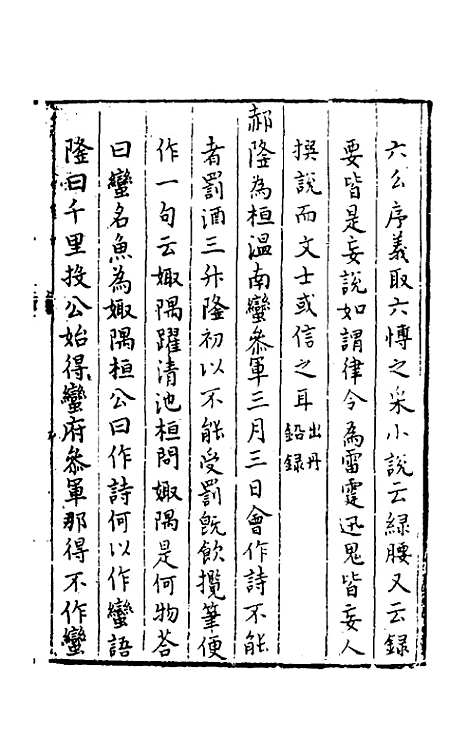 六公序義取六博之采小說云綠腰又云錄
要皆是妄說如謂律令為雷霆迅鬼皆妄人
撰說而文士或信之耳出丹鉛録
郝隆為桓溫南蠻叅軍三月三日會作詩不能
者罰酒三升隆初以不能受罰旣飲攬筆便
作一句云娵隅躍清池桓問娵隅是何物荅
曰蠻名魚為娵隅桓公曰作詩何以作蠻語
隆曰千里投公始得蠻府叅軍那得不作蠻